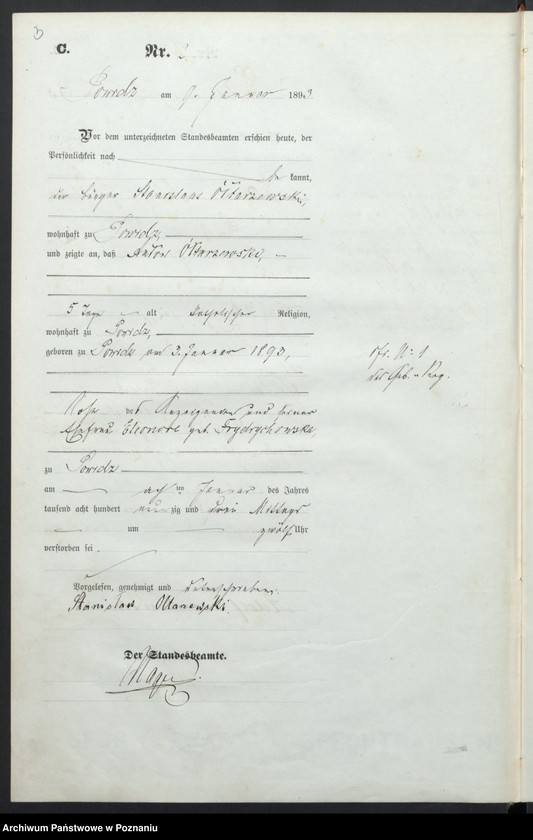 C.
Nr. 2
Powidz am 9. Januar 1893.
Vor dem unterzeichneten Standesbeamten erschien heute, der
Persönlichkeit nach
be kannt,
der Bürger Stanislaus
wohnhaft zu Powidz,
und zeigte an, daß Anton
5 Tage alt, katholischer Religion,
wohnhaft zu Powidz,
geboren zu Powidz am 3. Januar 1893,
cfr. No 1
des Geb. Reg.
Sohn des Anzeigenden und seiner
Ehefrau Eleonore geb. Frydrychowska,
zu Powidz
am acht ten Januar des Jahres
tausend acht hundert neun zig und drei Mittags
um zwölf Uhr
verstorben sei.
Vorgelesen, genehmigt und unterschrieben.
Stanislaw
Der Standesbeamte.
Archiwum Państwowe w Poznaniu